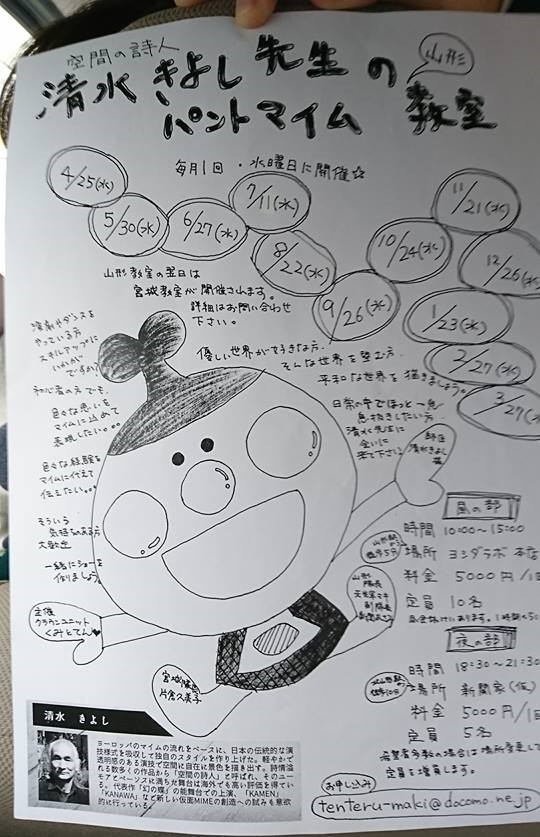 空間の詩人
清水きよし先生の
山形
パントマイム教室
毎月1回・水曜日に開催☆
4/25(水)
5/30(水)
6/27(水)
7/11(水)
8/22(水)
9/26(水)
10/24(水)
11/21(水)
12/26(水)
1/23(水)
2/27(水)
3/27(水)
山形教室の翌日は
宮城教室が開催されます。
詳細はお問い合わせ
下さい。
優しい世界が好きな方.
そんな世界を望む方.
平和な世界を描きましょう。
日常の中でほっと一息
息抜きしたい方.
清水先生に
会いに
来て下さい
師匠
清水きよし
演劇やダンスを
やっている方
スキルアップに
いかが
ですか?
初心者の方でも.
色々な思いを
マイムに込めて
表現したい。。。
色々な経験を
マイムに代えて
伝えたい。。。
そういう
気持ちのある方
大歓迎
一緒にショーを
作りましょう
主催
クラウンユニット
くみとてん
宮城隊長
片倉久美子
山形
隊長
副隊長
風の部
時間 10:00~15:00
場所 ヨシダラボ本店
料金 5000円/1回
定員 10名
夜の部
時間 18:30~21:30
場所 新聞家(仮)
料金 5000円/1回
定員 5名
希望者多数の場合は場所変更して
定員を増員します。
お申し込み
tenteru-maki@docomo.ne.jp
清水 きよし
ヨーロッパのマイムの流れをベースに、日本の伝統的な演
技様式を吸収して独自のスタイルを作り上げた。軽やかで
透明感のある演技で空間に自在に景色を描き出す。詩情溢
れる数多くの作品から「空間の詩人」と呼ばれ、そのユー
モアとペーソスに満ちた舞台は海外でも高い評価を得てい
る。代表作「幻の蝶」の能舞台での上演、「KAMEN」
「KANAWA」など新しい仮面MIMEの創造への試みも意欲
的に行っている